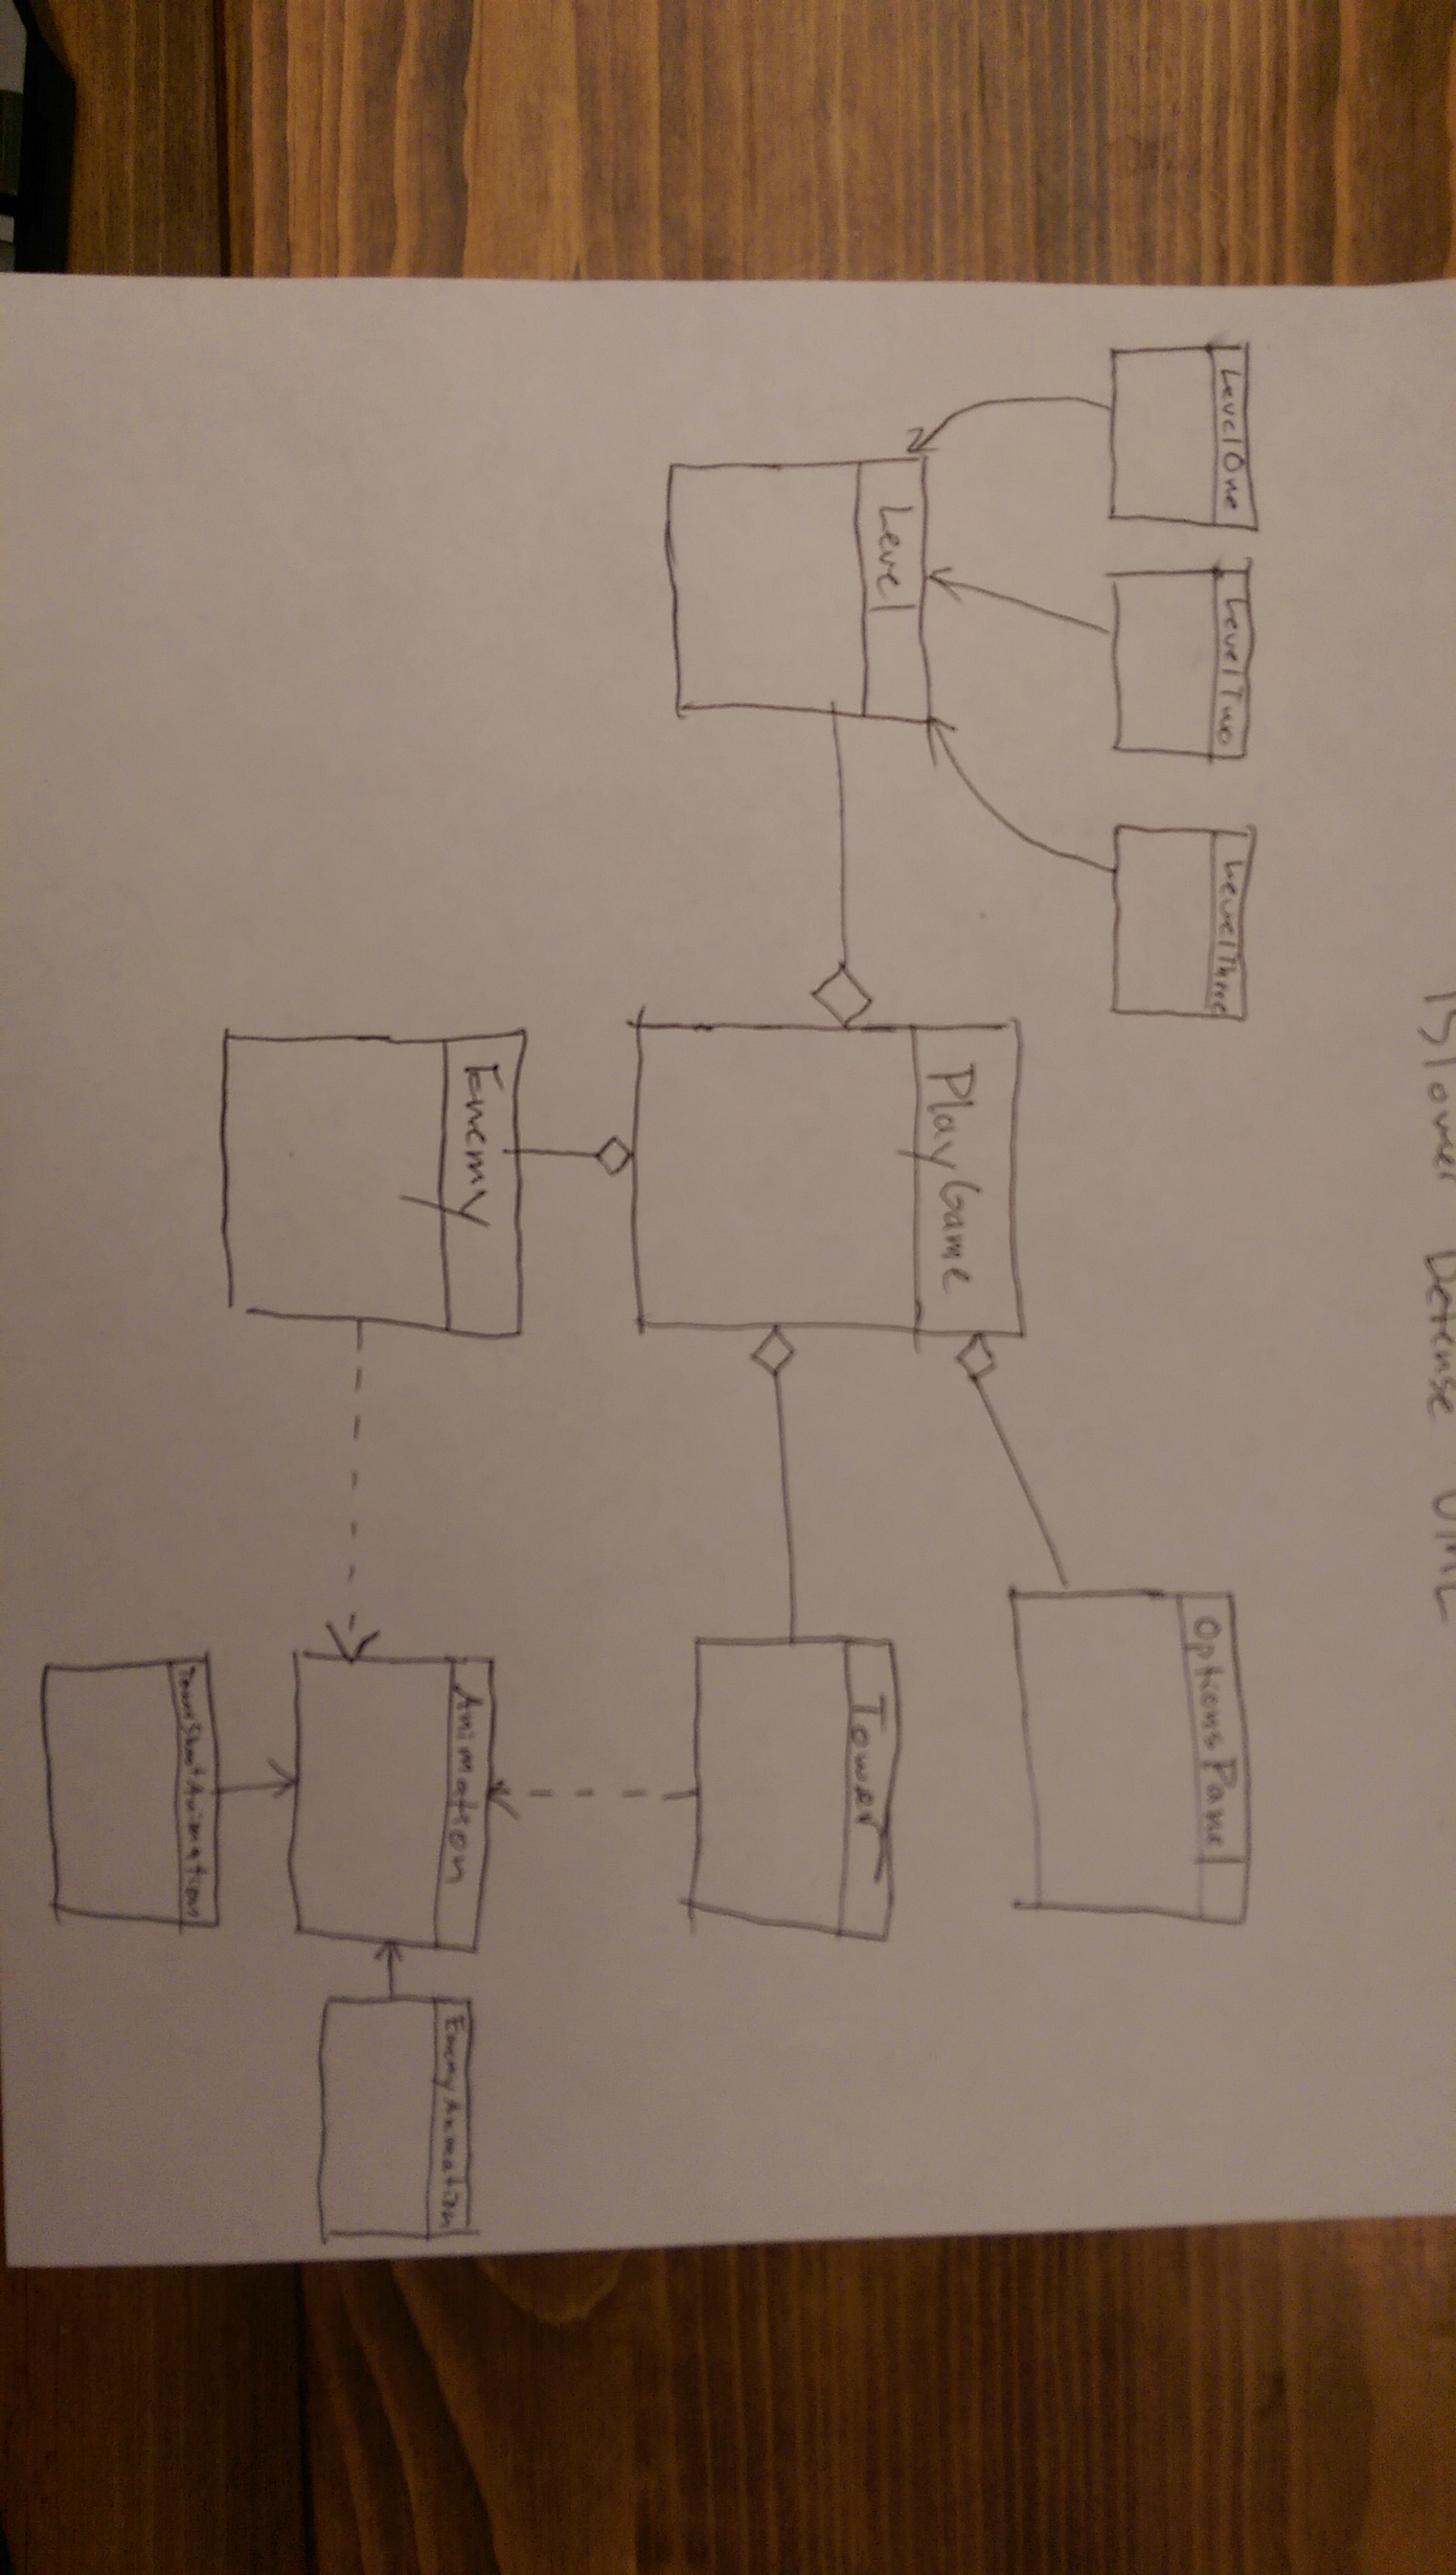 Tower Defense UML
LevelOne
LevelTwo
LevelThree
OptionsPanel
PlayGame
Level
Tower
Enemy
Animation
EnemyAnimation
TowerShootAnimation